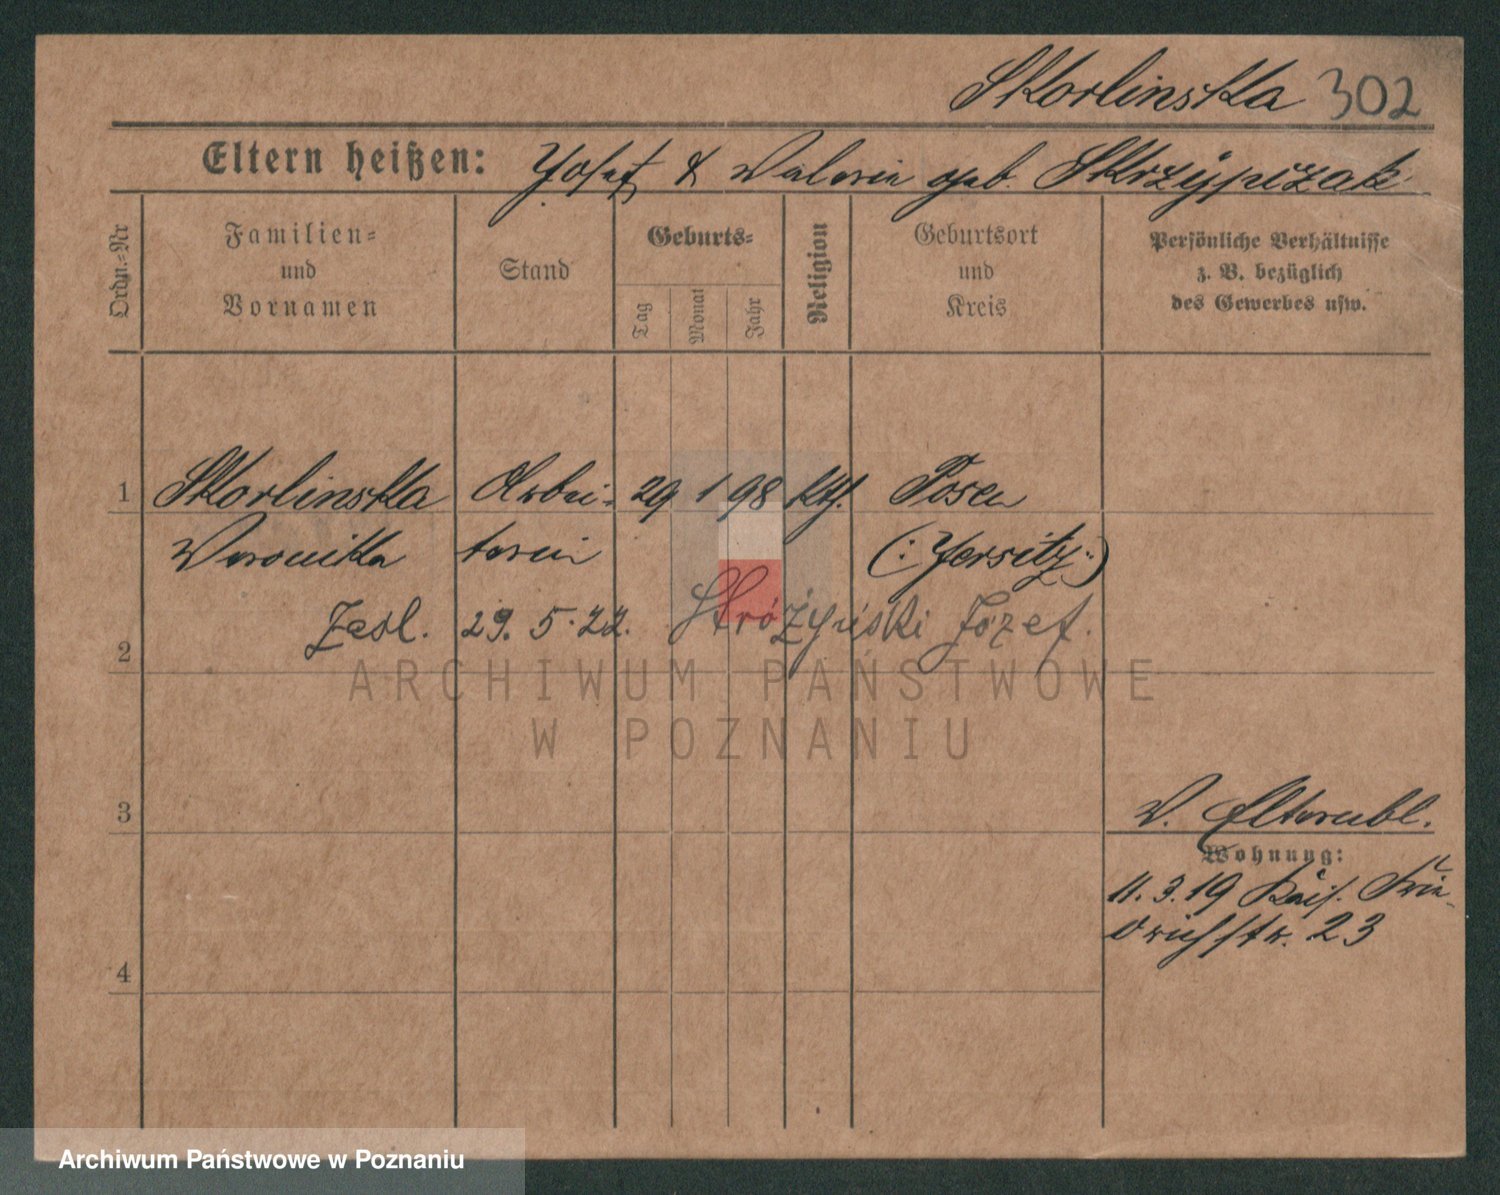 Skorlinska 302
Eltern heißen: Josef & Valerie geb. Skrzypczak
Ordn.-Nr
Familien-
und
Vornamen
Stand
Geburts-
Tag
Monat
Jahr
Religion
Geburtsort
und
Kreis
Persönliche Verhältnisse
z. B. bezüglich
des Gewerbes usw.
1 Skorlinska Arbei- 29 1 98 kth. Posen
Veronika terin (: Jersitz :)
Zasl. 29. 5. 22. Stróżyński Józef.
2
ARCHIWUM PAŃSTWOWE
W POZNANIU
3
V. Elternbl.
Wohnung:
11. 3. 19 Kais. Frie-
drichstr. 23
4
Archiwum Państwowe w Poznaniu